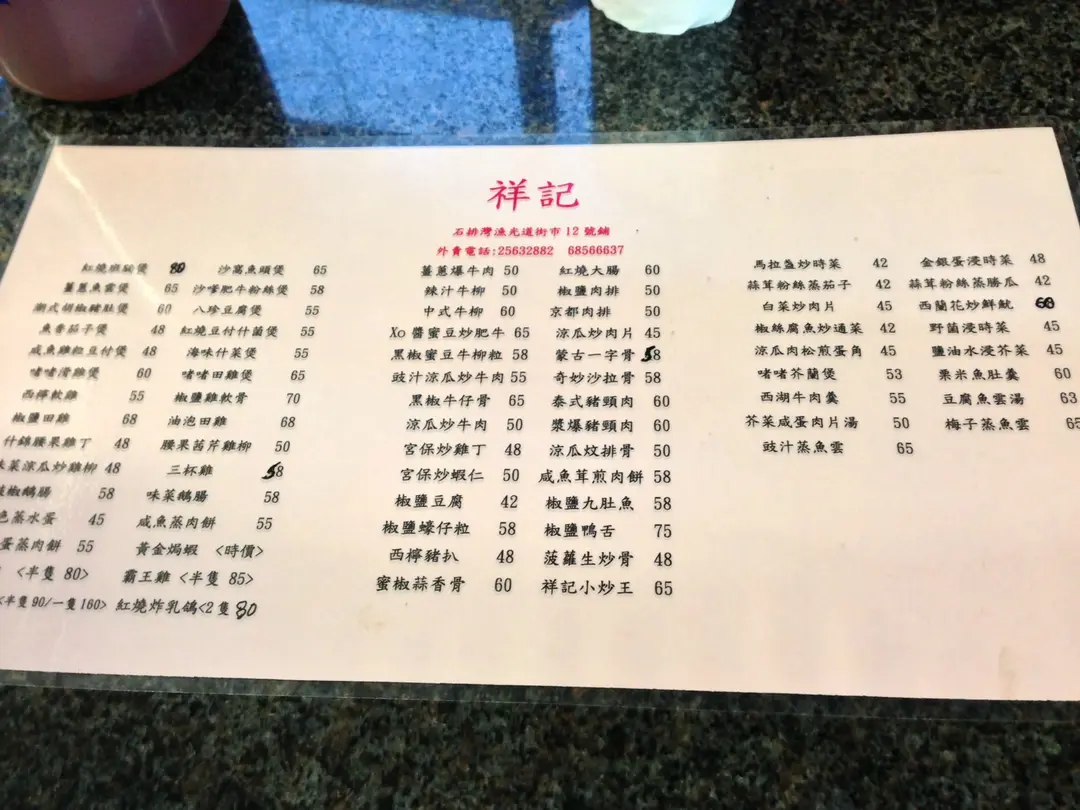 祥記
石排灣漁光道街市 12 號鋪
外賣電話:25632882 68566637
紅燒斑翅煲 80 沙窩魚頭煲 65
薑蔥魚雲煲 65 沙嗲肥牛粉絲煲 58
潮式胡椒豬肚煲 60 八珍豆腐煲 55
魚香茄子煲 48 紅燒豆付什菌煲 55
咸魚雞粒豆付煲 48 海味什菜煲 55
啫啫滑雞煲 60 啫啫田雞煲 65
西檸軟雞 55 椒鹽雞軟骨 70
椒鹽田雞 68 油泡田雞 68
什錦腰果雞丁 48 腰果茜芹雞柳 50
味菜涼瓜炒雞柳 48 三杯雞 58
椒鵝腸 58 味菜鵝腸 58
色蒸水蛋 45 咸魚蒸肉餅 55
蛋蒸肉餅 55 黃金焗蝦 <時價>
<半隻 80> 霸王雞 <半隻 85>
<半隻 90/一隻 160> 紅燒炸乳鴿<2 隻 80
薑蔥爆牛肉 50 紅燒大腸 60
辣汁牛柳 50 椒鹽肉排 50
中式牛柳 60 京都肉排 50
Xo 醬蜜豆炒肥牛 65 涼瓜炒肉片 45
黑椒蜜豆牛柳粒 58 蒙古一字骨 58
豉汁涼瓜炒牛肉 55 奇妙沙拉骨 58
黑椒牛仔骨 65 泰式豬頸肉 60
涼瓜炒牛肉 50 醬爆豬頸肉 60
宮保炒雞丁 48 涼瓜炆排骨 50
宮保炒蝦仁 50 咸魚茸煎肉餅 58
椒鹽豆腐 42 椒鹽九肚魚 58
椒鹽蠔仔粒 58 椒鹽鴨舌 75
西檸豬扒 48 菠蘿生炒骨 48
蜜椒蒜香骨 60 祥記小炒王 65
馬拉盞炒時菜 42 金銀蛋浸時菜 48
蒜茸粉絲蒸茄子 42 蒜茸粉絲蒸勝瓜 42
白菜炒肉片 45 西蘭花炒鮮魷 60
椒絲腐魚炒通菜 42 野菌浸時菜 45
涼瓜肉松煎蛋角 45 鹽油水浸芥菜 45
啫啫芥蘭煲 53 粟米魚肚羹 60
西湖牛肉羹 55 豆腐魚雲湯 63
芥菜咸蛋肉片湯 50 梅子蒸魚雲 65
豉汁蒸魚雲 65